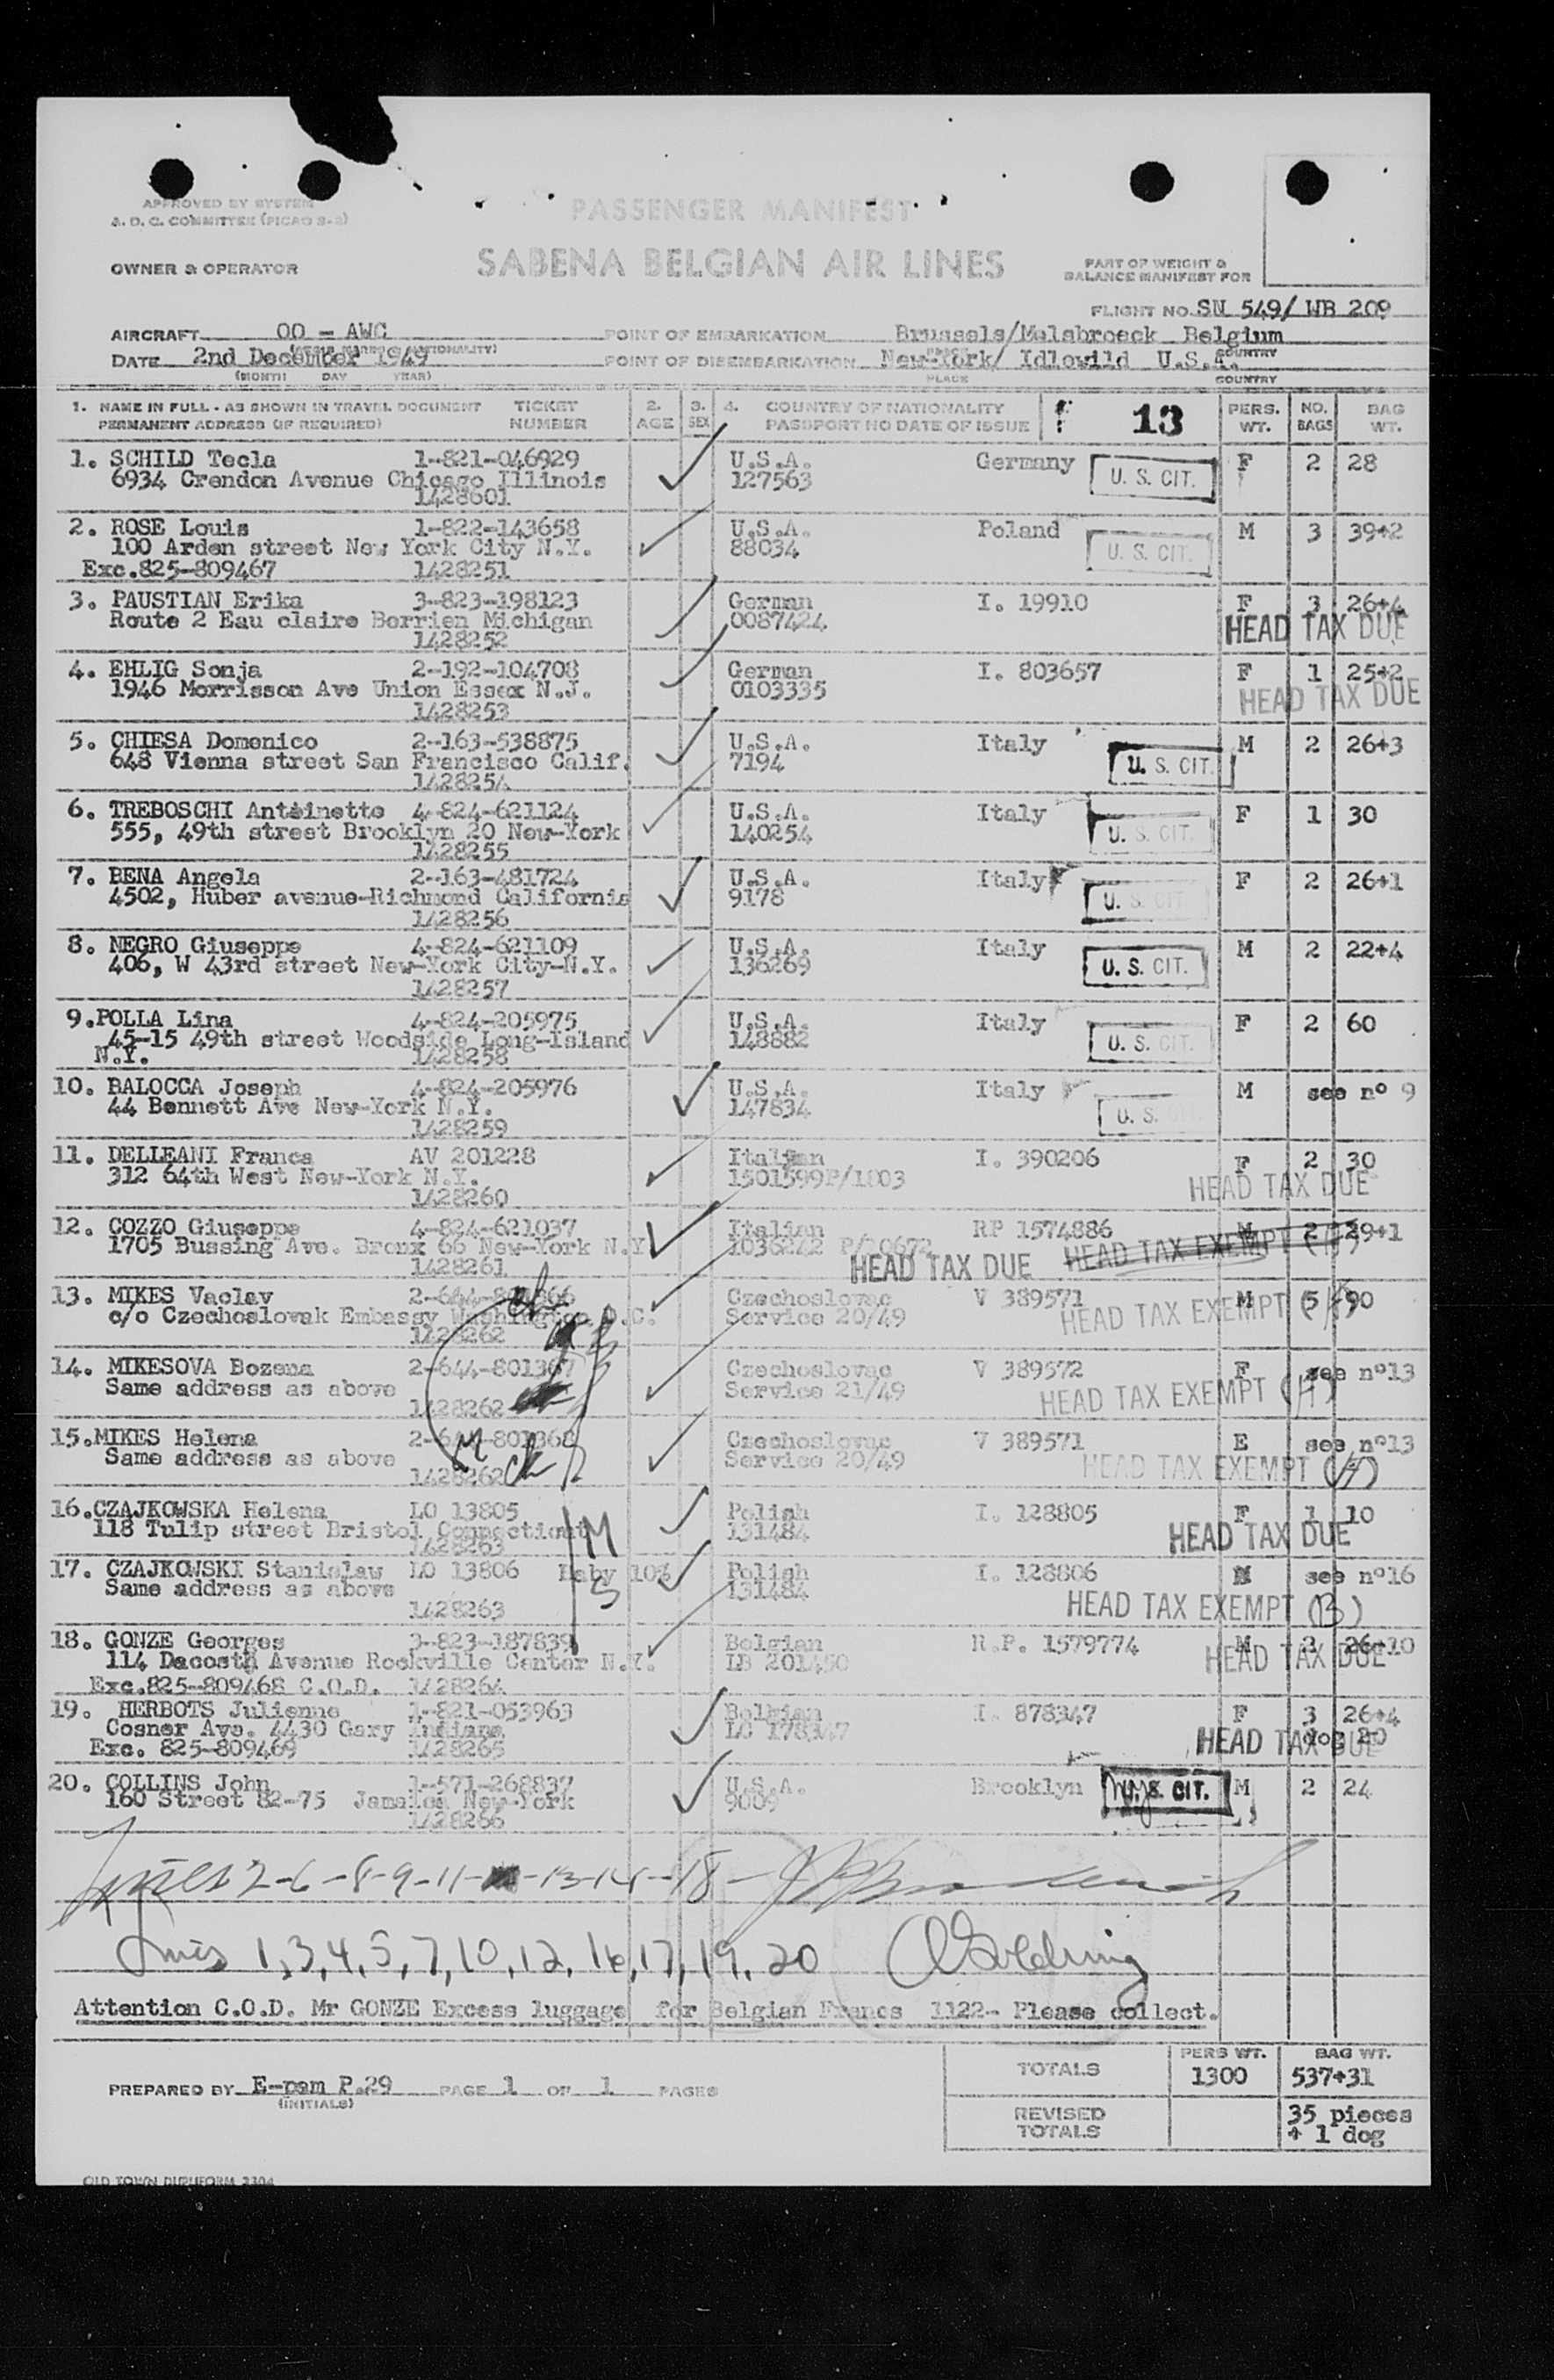 APPROVED BY SYSTEM
A. D. C. COMMITTEE (PICAO 2-2)
PASSENGER MANIFEST
SABENA BELGIAN AIR LINES
OWNER & OPERATOR
PART OF WEIGHT &
BALANCE MANIFEST FOR
FLIGHT NO. SN 549/ WB 209
AIRCRAFT OO - AWC POINT OF EMBARKATION Brussels/Melsbroeck Belgium
DATE 2nd December 1949 POINT OF DISEMBARKATION New-York/ Idlewild U.S.A.
(MONTH DAY YEAR) PLACE COUNTRY
1. NAME IN FULL - AS SHOWN IN TRAVEL DOCUMENT TICKET 2. 3. 4. COUNTRY OF NATIONALITY 13 PERS. NO. BAG
PERMANENT ADDRESS (IF REQUIRED) NUMBER AGE SEX PASSPORT NO DATE OF ISSUE WT. BAGS WT.
1. SCHILD Tecla 1-821-046929 U.S.A. Germany U. S. CIT. F 2 28
6934 Crendon Avenue Chicago Illinois 127563
1428601
2. ROSE Louis 1-822-143658 U.S.A. Poland U. S. CIT. M 3 39+2
100 Arden street New York City N.Y. 88034
Exc.825-809467 1428251
3. PAUSTIAN Erika 3-823-198123 German I. 19910 F 3 26+4
Route 2 Eau claire Berrien Michigan 0087424 HEAD TAX DUE
1428252
4. EHLIG Sonja 2-192-104708 German I. 803657 F 1 25+2
1946 Morrisson Ave Union Essex N.J. 0103335 HEAD TAX DUE
1428253
5. CHIESA Domenico 2-163-538875 U.S.A. Italy U. S. CIT. M 2 26+3
648 Vienna street San Francisco Calif. 7194
1428254
6. TREBOSCHI Antoinette 4-824-621124 U.S.A. Italy U. S. CIT. F 1 30
555, 49th street Brooklyn 20 New-York 140254
1428255
7. BENA Angela 2-163-481724 U.S.A. Italy U. S. CIT. F 2 26+1
4502, Huber avenue-Richmond California 9178
1428256
8. NEGRO Giuseppe 4-824-621109 U.S.A. Italy U. S. CIT. M 2 22+4
406, W 43rd street New-York City-N.Y. 136269
1428257
9.POLLA Lina 4-824-205975 U.S.A. Italy U. S. CIT. F 2 60
45-15 49th street Woodside Long-Island 148882
N.Y. 1428258
10. BALOCCA Joseph 4-824-205976 U.S.A. Italy U. S. M see nº 9
44 Bennett Ave New-York N.Y. 147834
1428259
11. DELLEANI Franca AV 201228 Italian I. 390206 F 2 30
312 64th West New-York N.Y. 1501599P/1803 HEAD TAX DUE
1428260
12. COZZO Giuseppe 4-824-621037 Italian RP 1574886 M 2 29+1
1705 Bussing Ave. Bronx 66 New-York N.Y 1036242 P/20672 HEAD TAX DUE HEAD TAX EXEMPT (H)
1428261
13. MIKES Vaclav Czechoslovac V 389571 M 5 90
c/o Czechoslovak Embassy Washington D.C. Service 20/49 HEAD TAX EXEMPT (H)
1428262
14. MIKESOVA Bozena 2-644-801367 Czechoslovac V 389572 F see nº13
Same address as above Service 21/49 HEAD TAX EXEMPT (H)
1428262
15.MIKES Helena 2-644-801368 Czechoslovac V 389571 E see nº13
Same address as above Service 20/49 HEAD TAX EXEMPT (H)
1428262
16.CZAJKOWSKA Helena LO 13805 Polish I. 128805 F 1 10
118 Tulip street Bristol Connecticut 131484 HEAD TAX DUE
1428263
17. CZAJKOWSKI Stanislaw LO 13806 Baby 10% Polish I. 128806 M see nº16
Same address as above 131484 HEAD TAX EXEMPT (B)
1428263
18. GONZE Georges 3-823-187839 Belgian R.P. 1579774 M 2 26+10
114 Dacosta Avenue Rockville Center N.Y. LB 201450 HEAD TAX DUE
Exc.825-809468 C.O.D. 1428264
19. HERBOTS Julienne 1-821-053963 Belgian I. 878347 F 3 26+4
Cosner Ave. 4430 Gary Indiana LC 178347 HEAD TAX DUE dog 20
Exc. 825-809469 1428265
20. COLLINS John 1-571-268837 U.S.A. Brooklyn U. S. CIT. M 2 24
160 Street 82-75 Jamaica New-York 9009
1428266
Lines 2-6-8-9-11-13-14-18-
Lines 1,3,4,5,7,10,12,16,17,19,20
Attention C.O.D. Mr GONZE Excess luggage for Belgian Francs 1122- Please collect.
TOTALS PERS WT. 1300 BAG WT. 537+31
PREPARED BY E-pem P.29 PAGE 1 OF 1 PAGES
(INITIALS)
REVISED TOTALS 35 pieces + 1 dog
OLD TOWN DUPLIFORM 3304